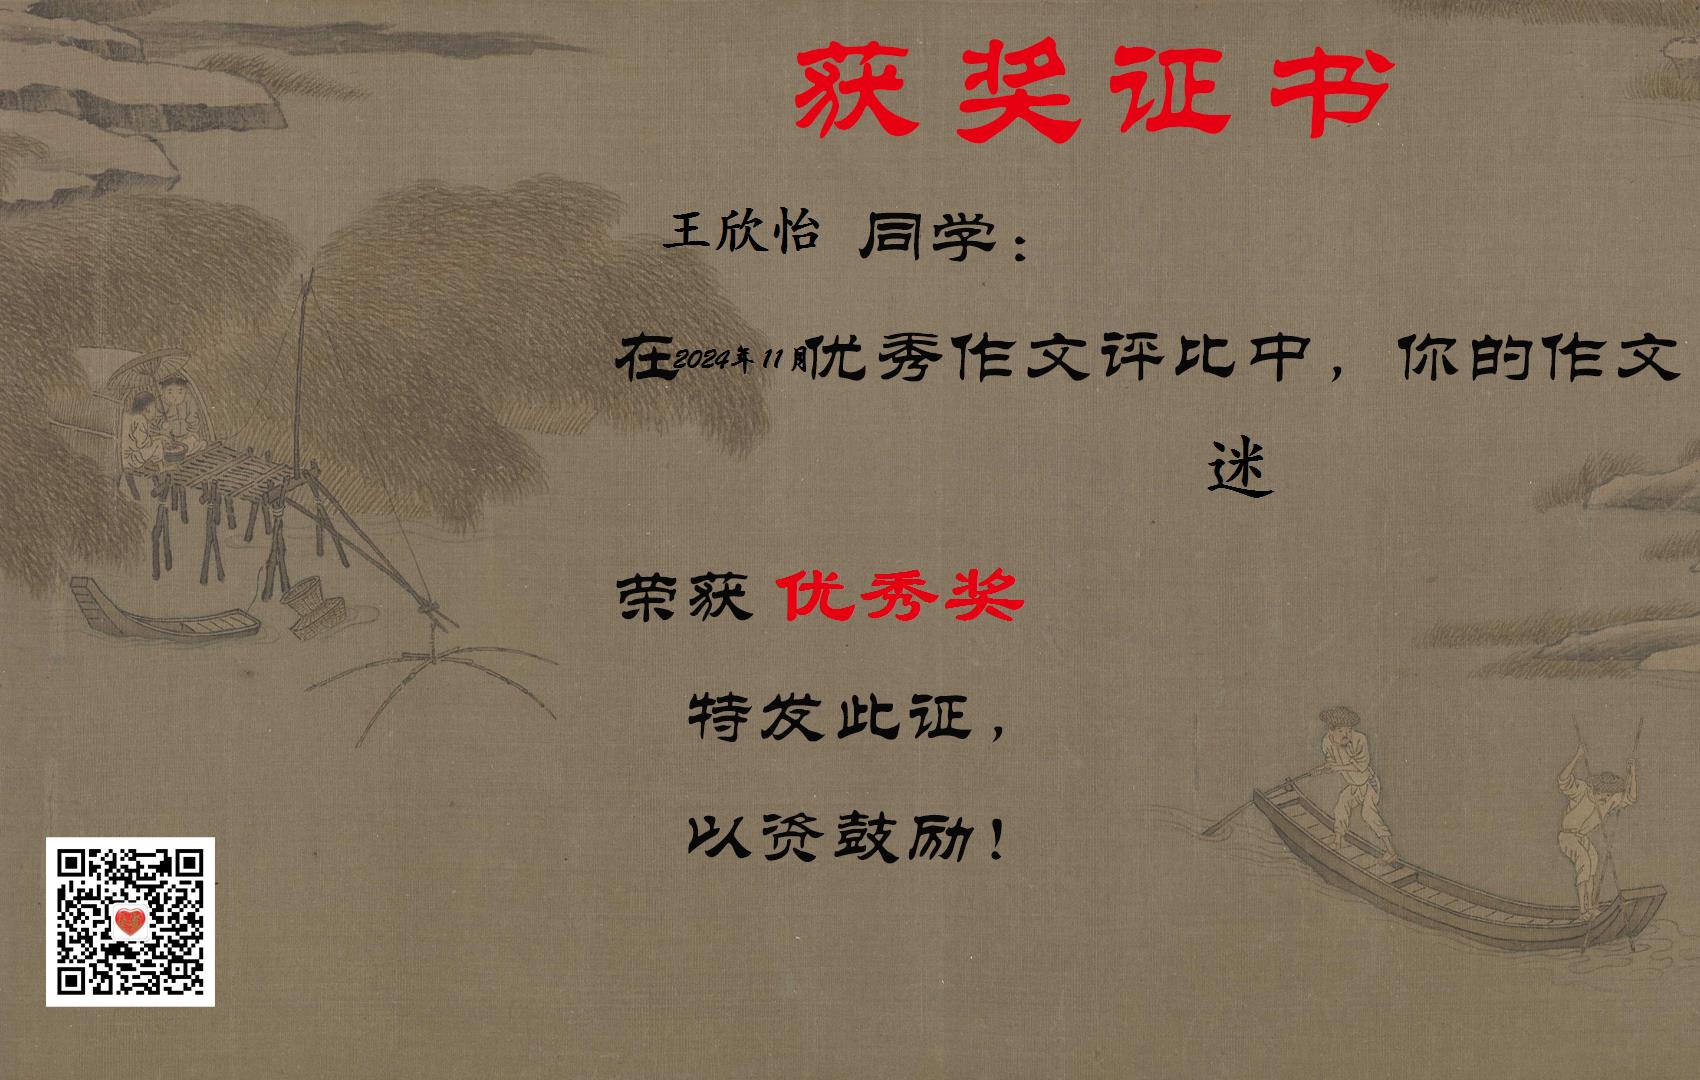 获奖证书
王欣怡 同学：
在2024年11月优秀作文评比中，你的作文
迷
荣获 优秀奖
特发此证，
以资鼓励！